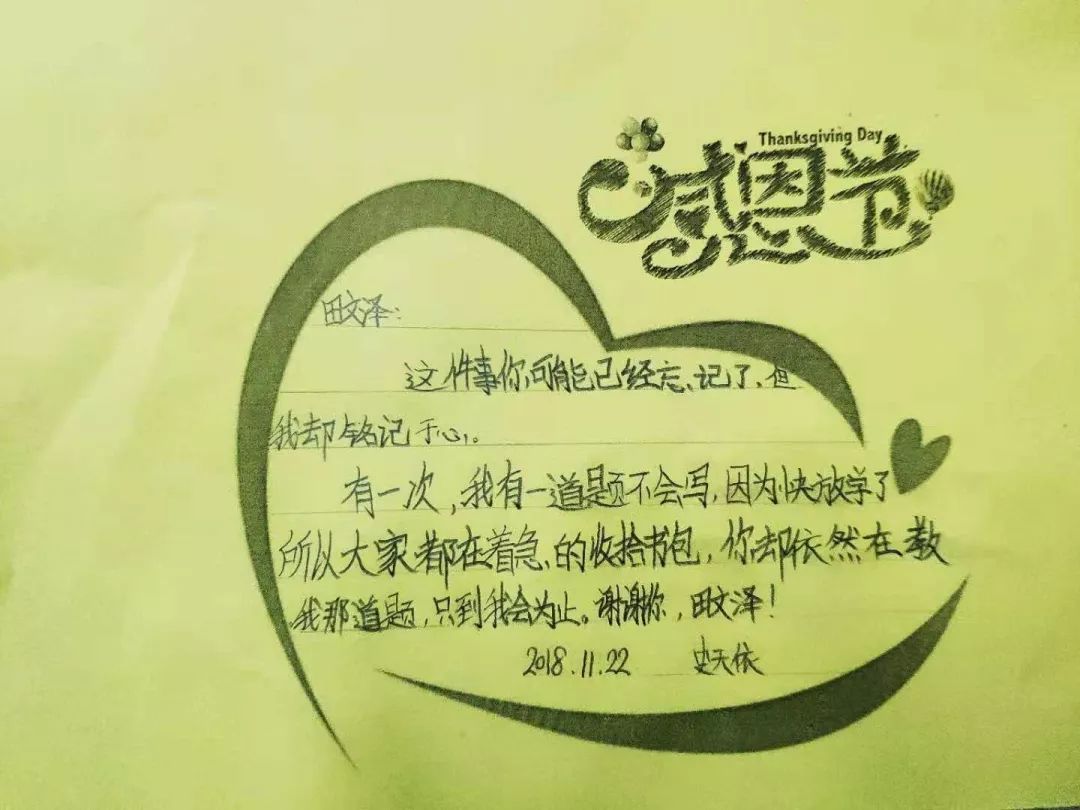 Thanksgiving Day
感恩节
田文泽:
这件事你可能已经忘记了,但
我却铭记于心。
有一次,我有一道题不会写,因为快放学了
所以大家都在着急的收拾书包,你却依然在教
我那道题,只到我会为止。谢谢你,田文泽!
2018.11.22 史天依